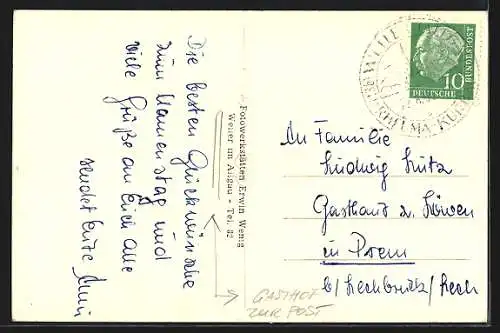 Die besten Glückwünsche
zum Namenstag und
viele Grüße an Euch alle
sendet Eure
Fotowerkstätten Erwin Wenig
Weiler im Allgäu - Tel. 82
GASTHOF
ZUR POST
10
DEUTSCHE
BUNDESPOST
An Familie
Ludwig Lutz
Gasthaus z. Löwen
in Prem
b/ Lechbruck/Lech